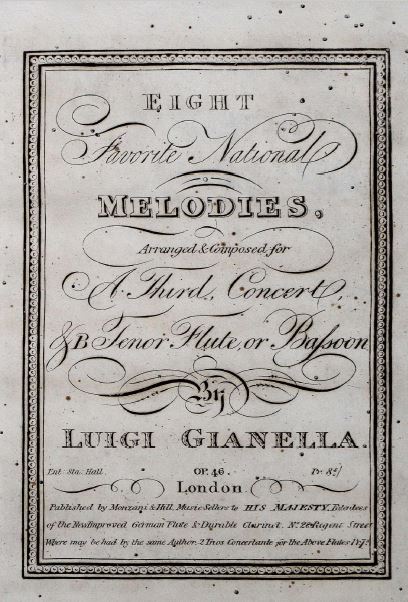 EIGHT
Favorite National
MELODIES,
Arranged & Composed for
A Third, Concert,
& B Tenor Flute, or Baſsoon
By
LUIGI GIANELLA.
Ent. Sta. Hall. OP. 46. Pr. 8s/
London.
Published by Monzani & Hill, Music Sellers to HIS MAJESTY, Patentees
of the New Improved German Flute & Durable Clarinet, No. 28 Regent Street
Where may be had by the same Author, 2 Trios Concertante for the Above Flutes